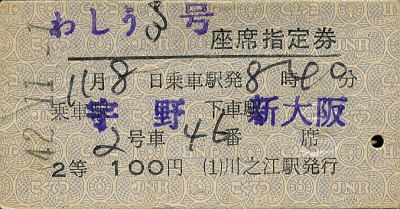 わしう 8 号
座席指定券
11月8日乗車駅発8時40分
乗車駅 宇野 下車駅 新大阪
2号車 46番 席
2等 100円 (1)川之江駅発行
42.11.-1
JNR